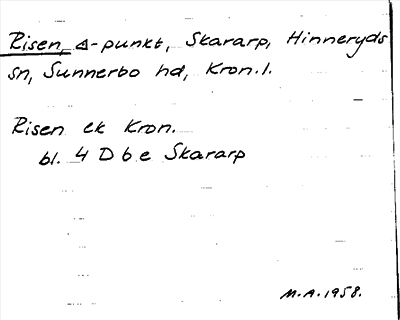 Risen, △-punkt, Skararp, Hinneryds
sn, Sunnerbo hd, Kron.l.
Risen ek Kron.
bl. 4 D b e Skararp
M.A. 1958.